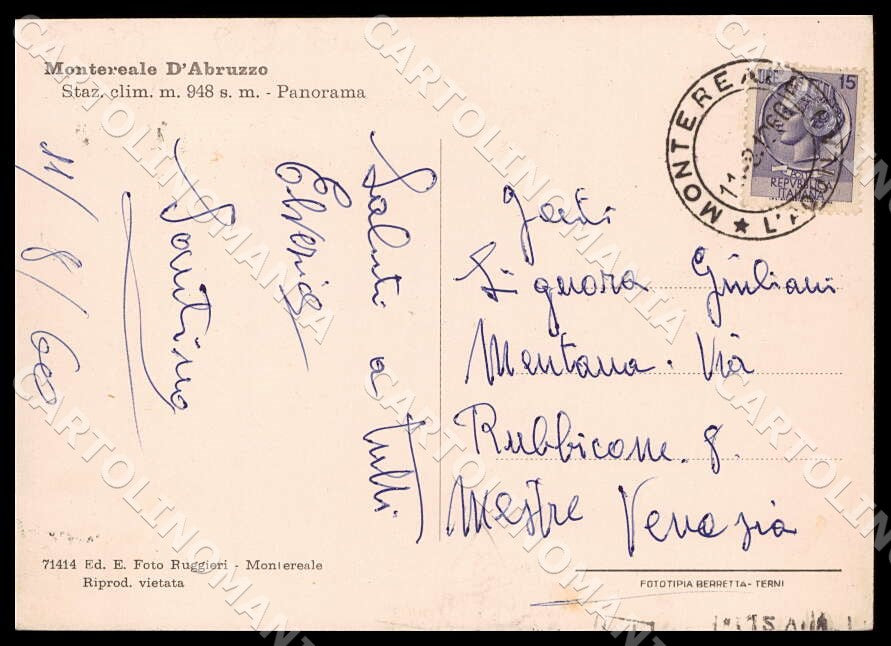 Montereale D'Abruzzo
Staz. clim. m. 948 s. m. - Panorama
Saluti a tutti
Santino
11/8/60
Signora Giuliani
Mentana. Via
Rubbicone. 8.
Mestre Venezia
MONTEREALE
L'AQUILA
LIRE 15
REPVBBLICA
ITALIANA
71414 Ed. E. Foto Ruggieri - Montereale
Riprod. vietata
FOTOTIPIA BERRETTA - TERNI
CARTOLINOMANIA